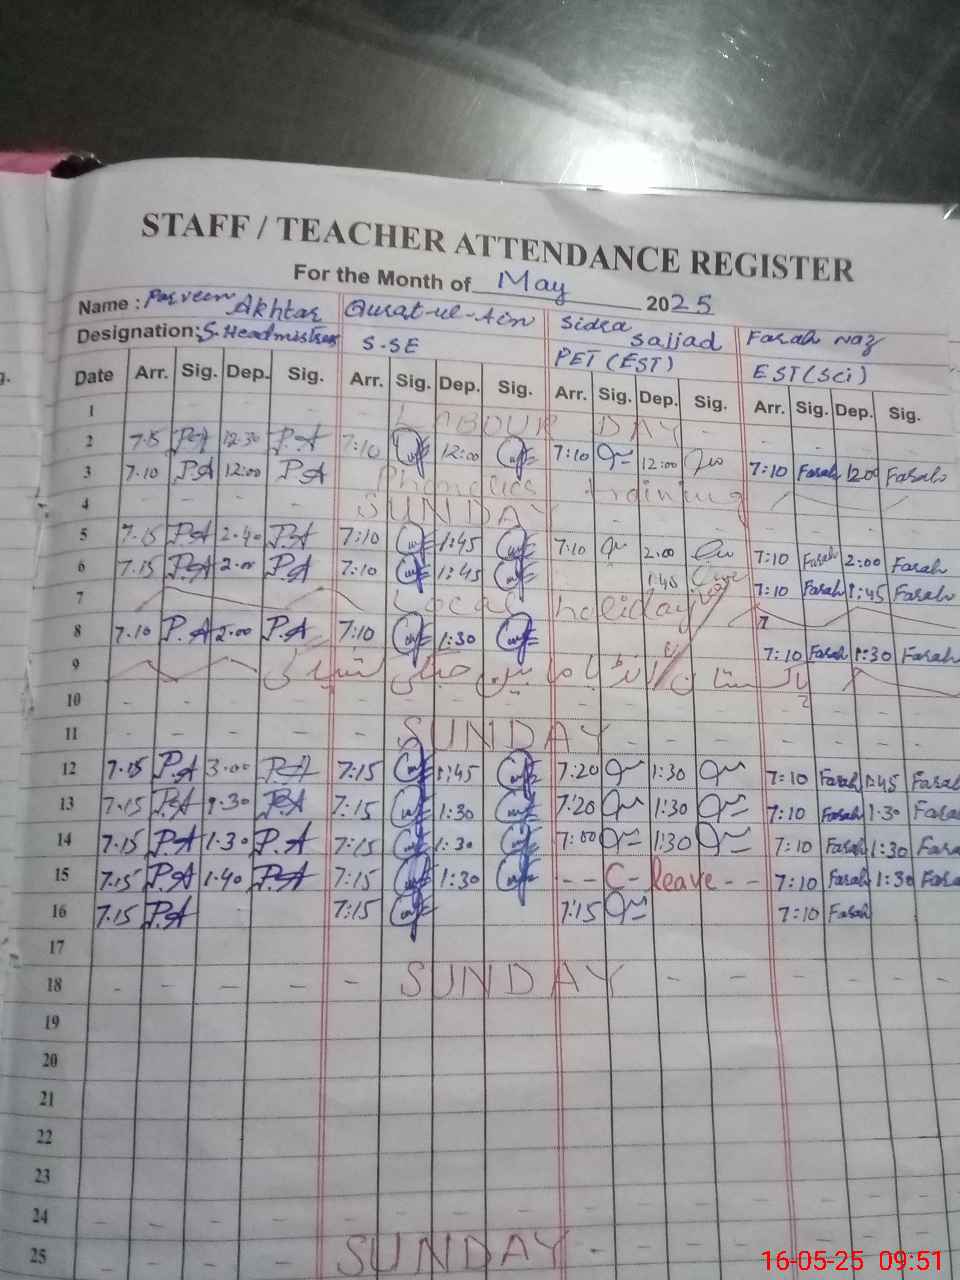 STAFF / TEACHER ATTENDANCE REGISTER
For the Month of May 2025
Name : Parveen Akhtar Qurat-ul-Ain Sidra Sajjad Farah Naz
Designation: S. Headmistress S-SE PET (EST) EST (Sci)
Date Arr. Sig. Dep. Sig. Arr. Sig. Dep. Sig. Arr. Sig. Dep. Sig. Arr. Sig. Dep. Sig.
1 LABOUR DAY
2 7.15 P.A 12:30 P.A 7:10 12:00 7:10 12:00 7:10 Farah 12:00 Farah
3 7.10 P.A 12:00 P.A Phonetics training
4 SUNDAY
5 7.15 P.A 2.40 P.A 7:10 1:45 7:10 2:00 7:10 Farah 2:00 Farah
6 7.15 P.A 2.00 P.A 7:10 1:45 1:45 7:10 Farah 1:45 Farah
7 Local holiday
8 7.10 P.A 2:00 P.A 7:10 1:30 7:10 Farah 1:30 Farah
9 پاکستان انڈیا مابین جنگی کشیدگی
10
11 SUNDAY
12 7.15 P.A 3.00 P.A 7:15 1:45 7:20 1:30 7:10 Farah 1:45 Farah
13 7.15 P.A 1.30 P.A 7:15 1:30 7:20 1:30 7:10 Farah 1:30 Farah
14 7.15 P.A 1.30 P.A 7:15 1:30 7:00 1:30 7:10 Farah 1:30 Fara
15 7.15 P.A 1.40 P.A 7:15 1:30 C- leave 7:10 Farah 1:30 Fara
16 7.15 P.A 7:15 7:15 7:10 Farah
17
18 SUNDAY
19
20
21
22
23
24
25 SUNDAY
16-05-25 09:51